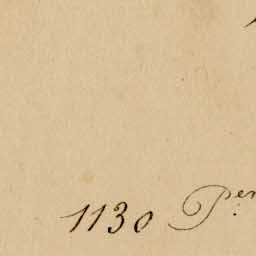 1130 Per